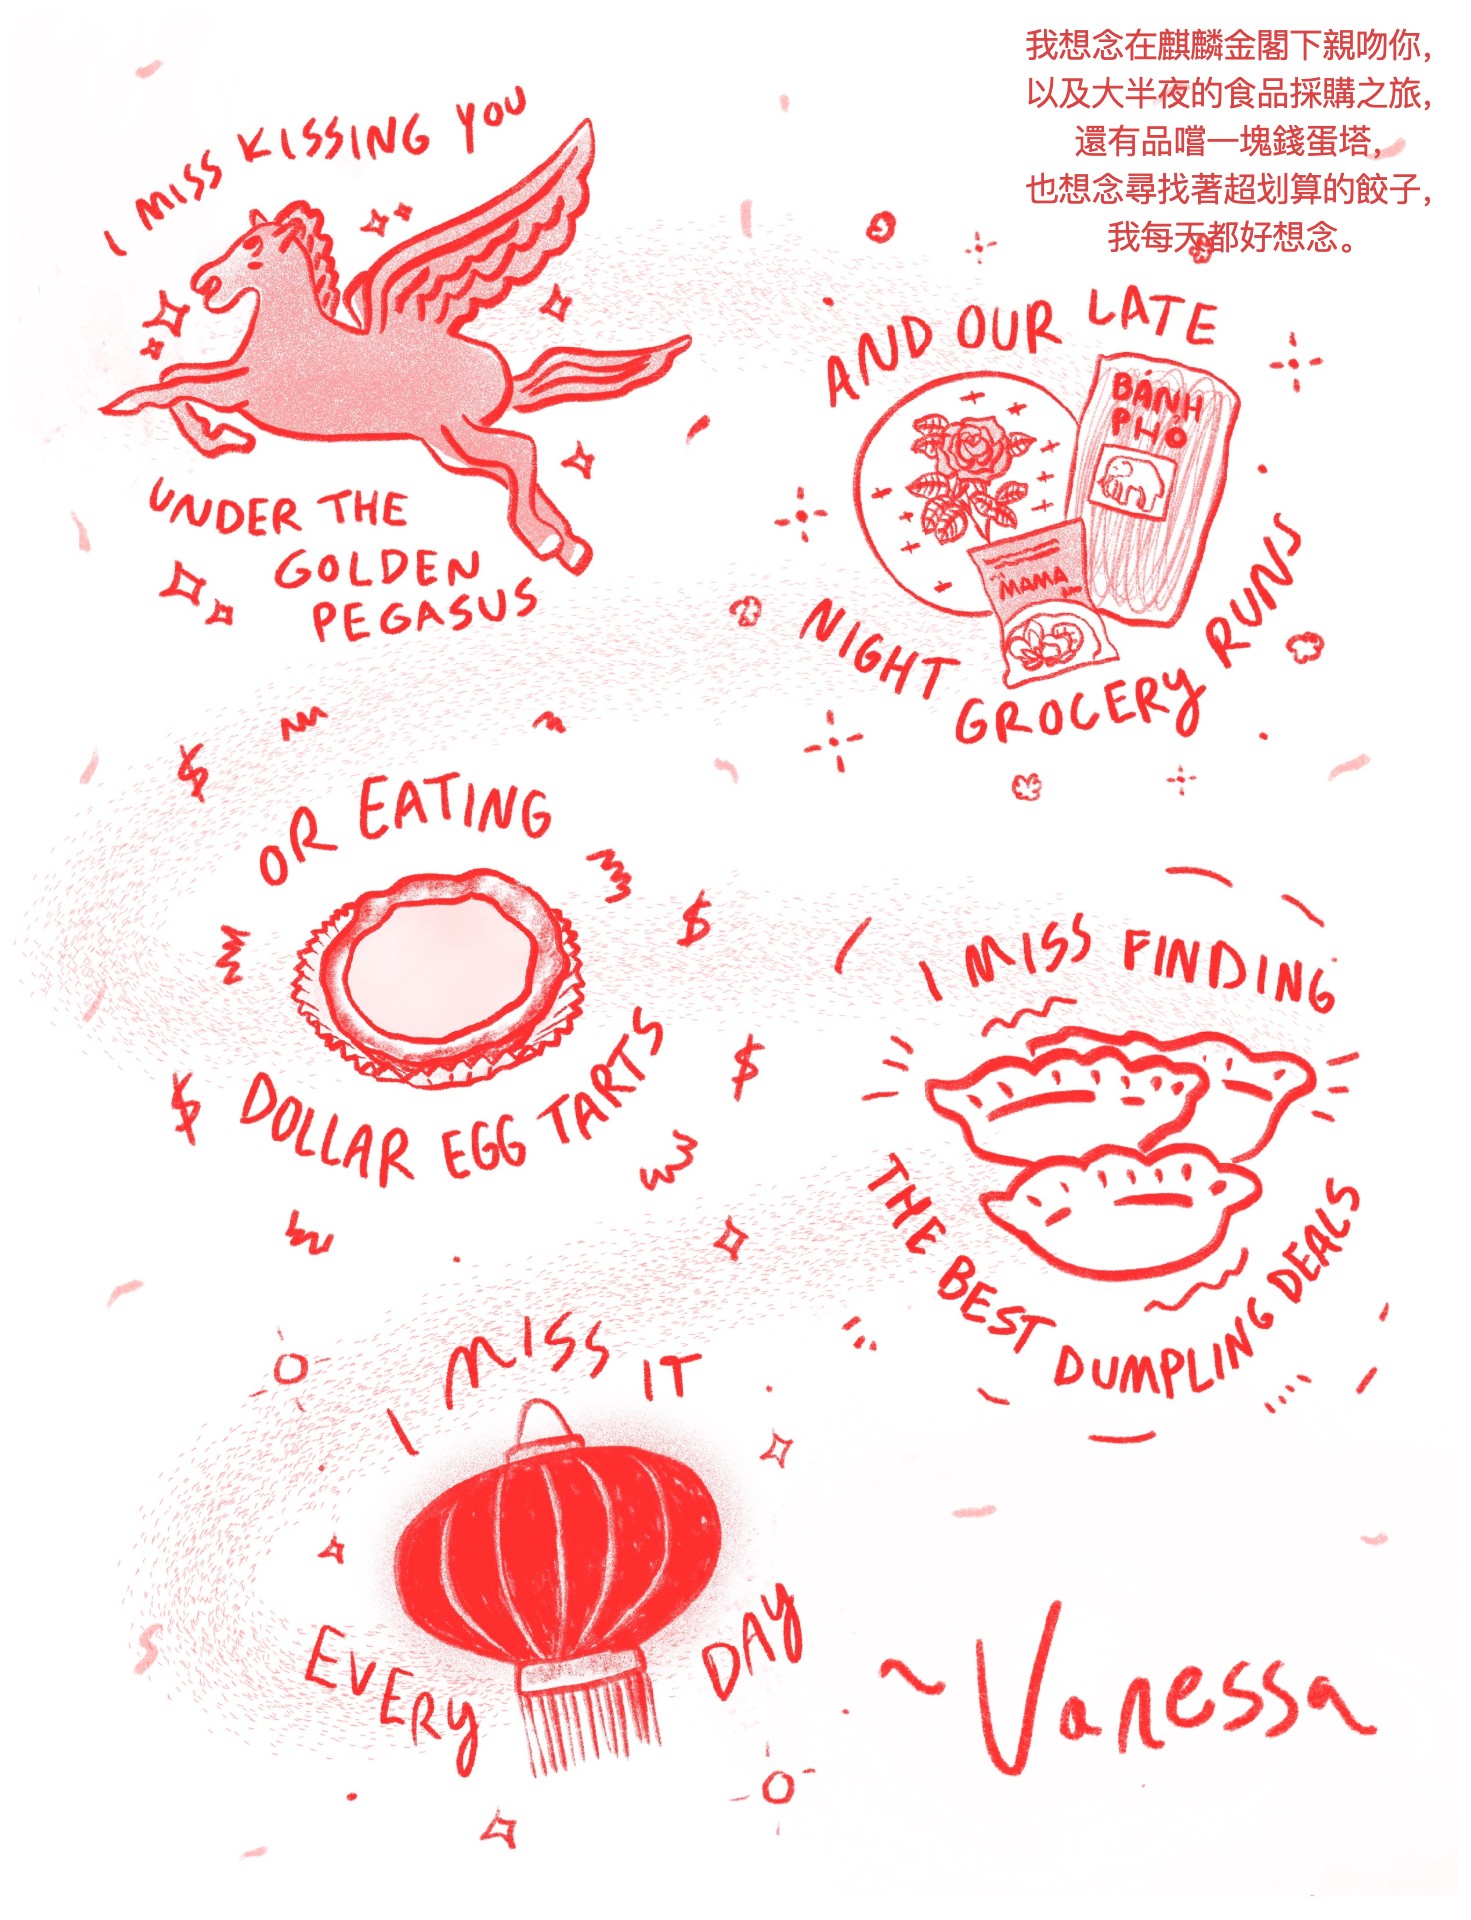 我想念在麒麟金閣下親吻你,
以及大半夜的食品採購之旅,
還有品嚐一塊錢蛋塔,
也想念尋找著超划算的餃子,
我每天都好想念。
I MISS KISSING YOU
UNDER THE
GOLDEN
PEGASUS
AND OUR LATE
BÁNH
PHỞ
MAMA
NIGHT GROCERY RUNS
OR EATING
$
$
$
$
DOLLAR EGG TARTS
I MISS FINDING
THE BEST DUMPLING DEALS
I MISS IT
EVERY DAY
~Vanessa